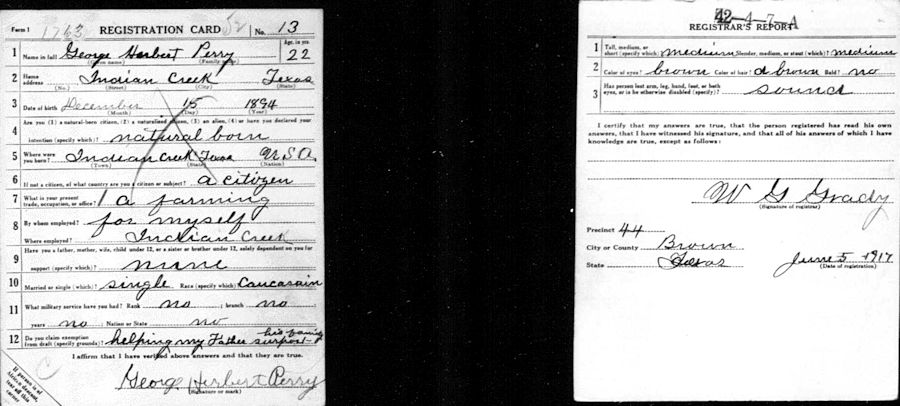 Form 1 1763 REGISTRATION CARD No. 13
1 Name in full George Herbert Perry Age, in yrs. 22
(Given name) (Family name)
2 Home address Indian Creek Texas
(No.) (Street) (City) (State)
3 Date of birth December 15 1894
(Month) (Day) (Year)
Are you (1) a natural-born citizen, (2) a naturalized citizen, (3) an alien, (4) or have you declared your
4 intention (specify which)? natural born
5 Where were you born? Indian Creek Texas U.S.A.
(Town) (State) (Nation)
6 If not a citizen, of what country are you a citizen or subject? a citizen
7 What is your present trade, occupation, or office? a farming
8 By whom employed? for myself
Where employed? Indian Creek
Have you a father, mother, wife, child under 12, or a sister or brother under 12, solely dependent on you for
9 support (specify which)? none
10 Married or single (which)? single Race (specify which)? Caucasain
11 What military service have you had? Rank no ; branch no ;
years no ; Nation or State no
12 Do you claim exemption from draft (specify grounds)? helping my Father surport his family
I affirm that I have verified above answers and that they are true.
George Herbert Perry
(Signature or mark)
If person is of African descent, tear off this corner
42-4-7-A
REGISTRAR'S REPORT
1 Tall, medium, or short (specify which)? medium Slender, medium, or stout (which)? medium
2 Color of eyes? brown Color of hair? d brown Bald? no
3 Has person lost arm, leg, hand, foot, or both eyes, or is he otherwise disabled (specify)? sound
I certify that my answers are true, that the person registered has read his own
answers, that I have witnessed his signature, and that all of his answers of which I have
knowledge are true, except as follows:
W G Grady
(Signature of registrar)
Precinct 44
City or County Brown
State Texas June 5 1917
(Date of registration)